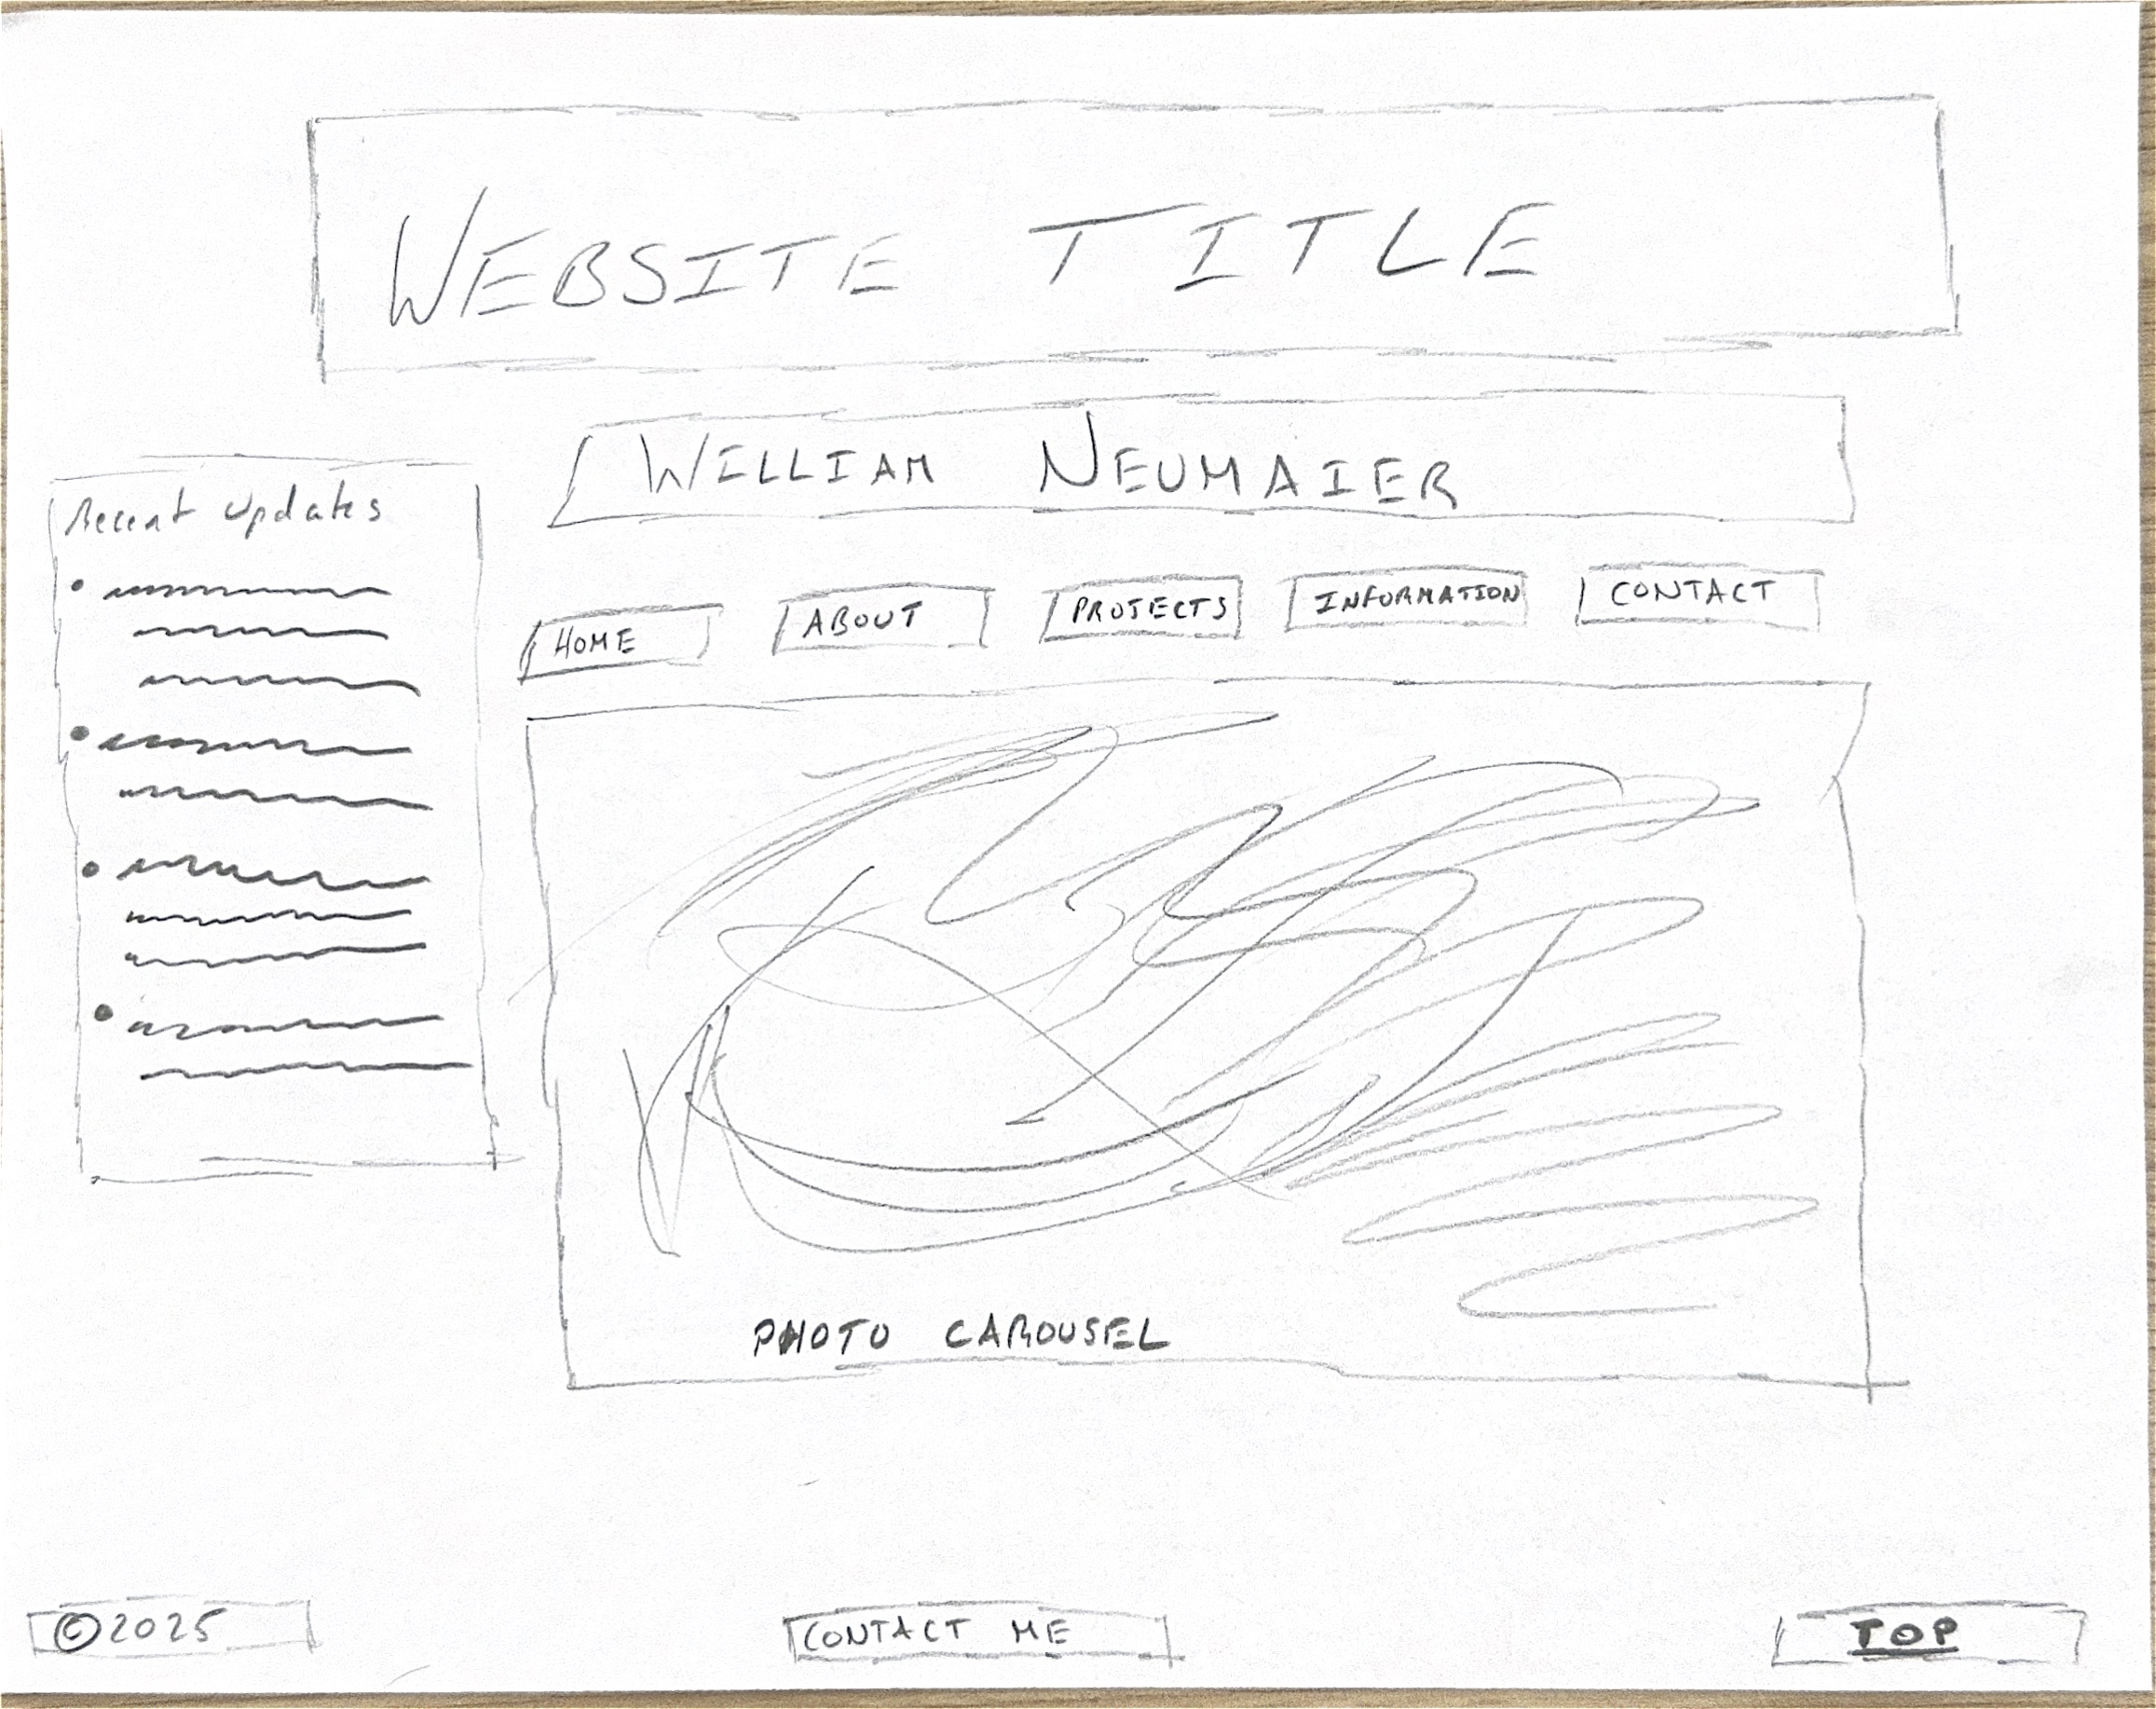 WEBSITE TITLE
WILLIAM NEUMAIER
Recent updates
HOME
ABOUT
PROJECTS
INFORMATION
CONTACT
PHOTO CAROUSEL
©2025
CONTACT ME
TOP